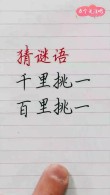 猜谜语
千里挑一
百里挑一